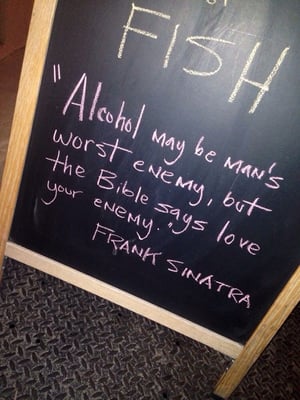 FISH
"Alcohol may be man's
worst enemy, but
the Bible says love
your enemy."
FRANK SINATRA